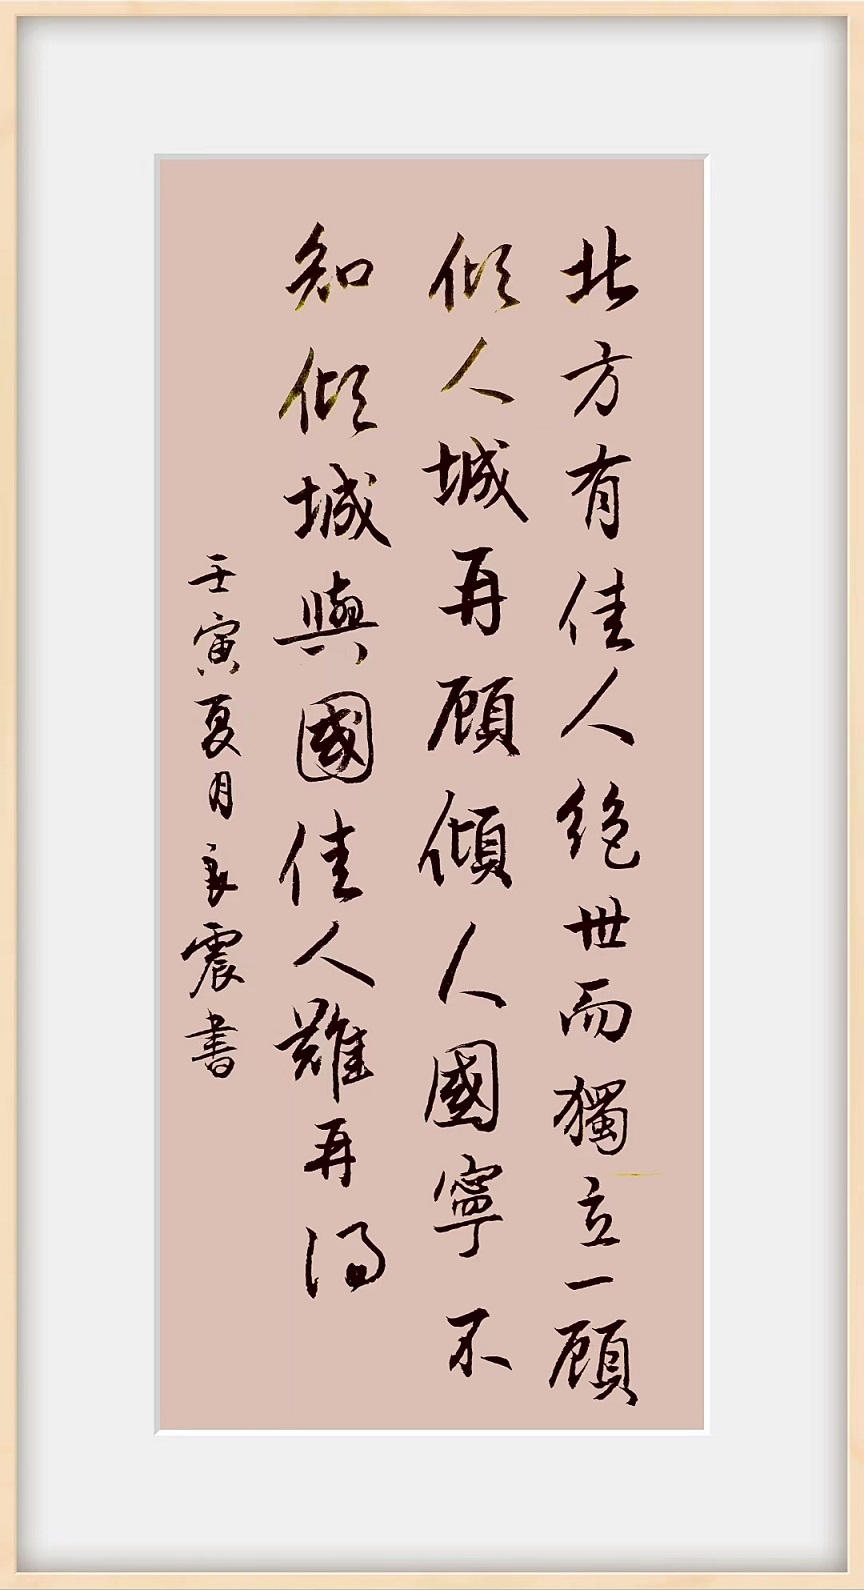 北方有佳人絶世而獨立一顾
倾人城再顾傾人國寧不
知倾城與國佳人難再得
壬寅夏月永震書